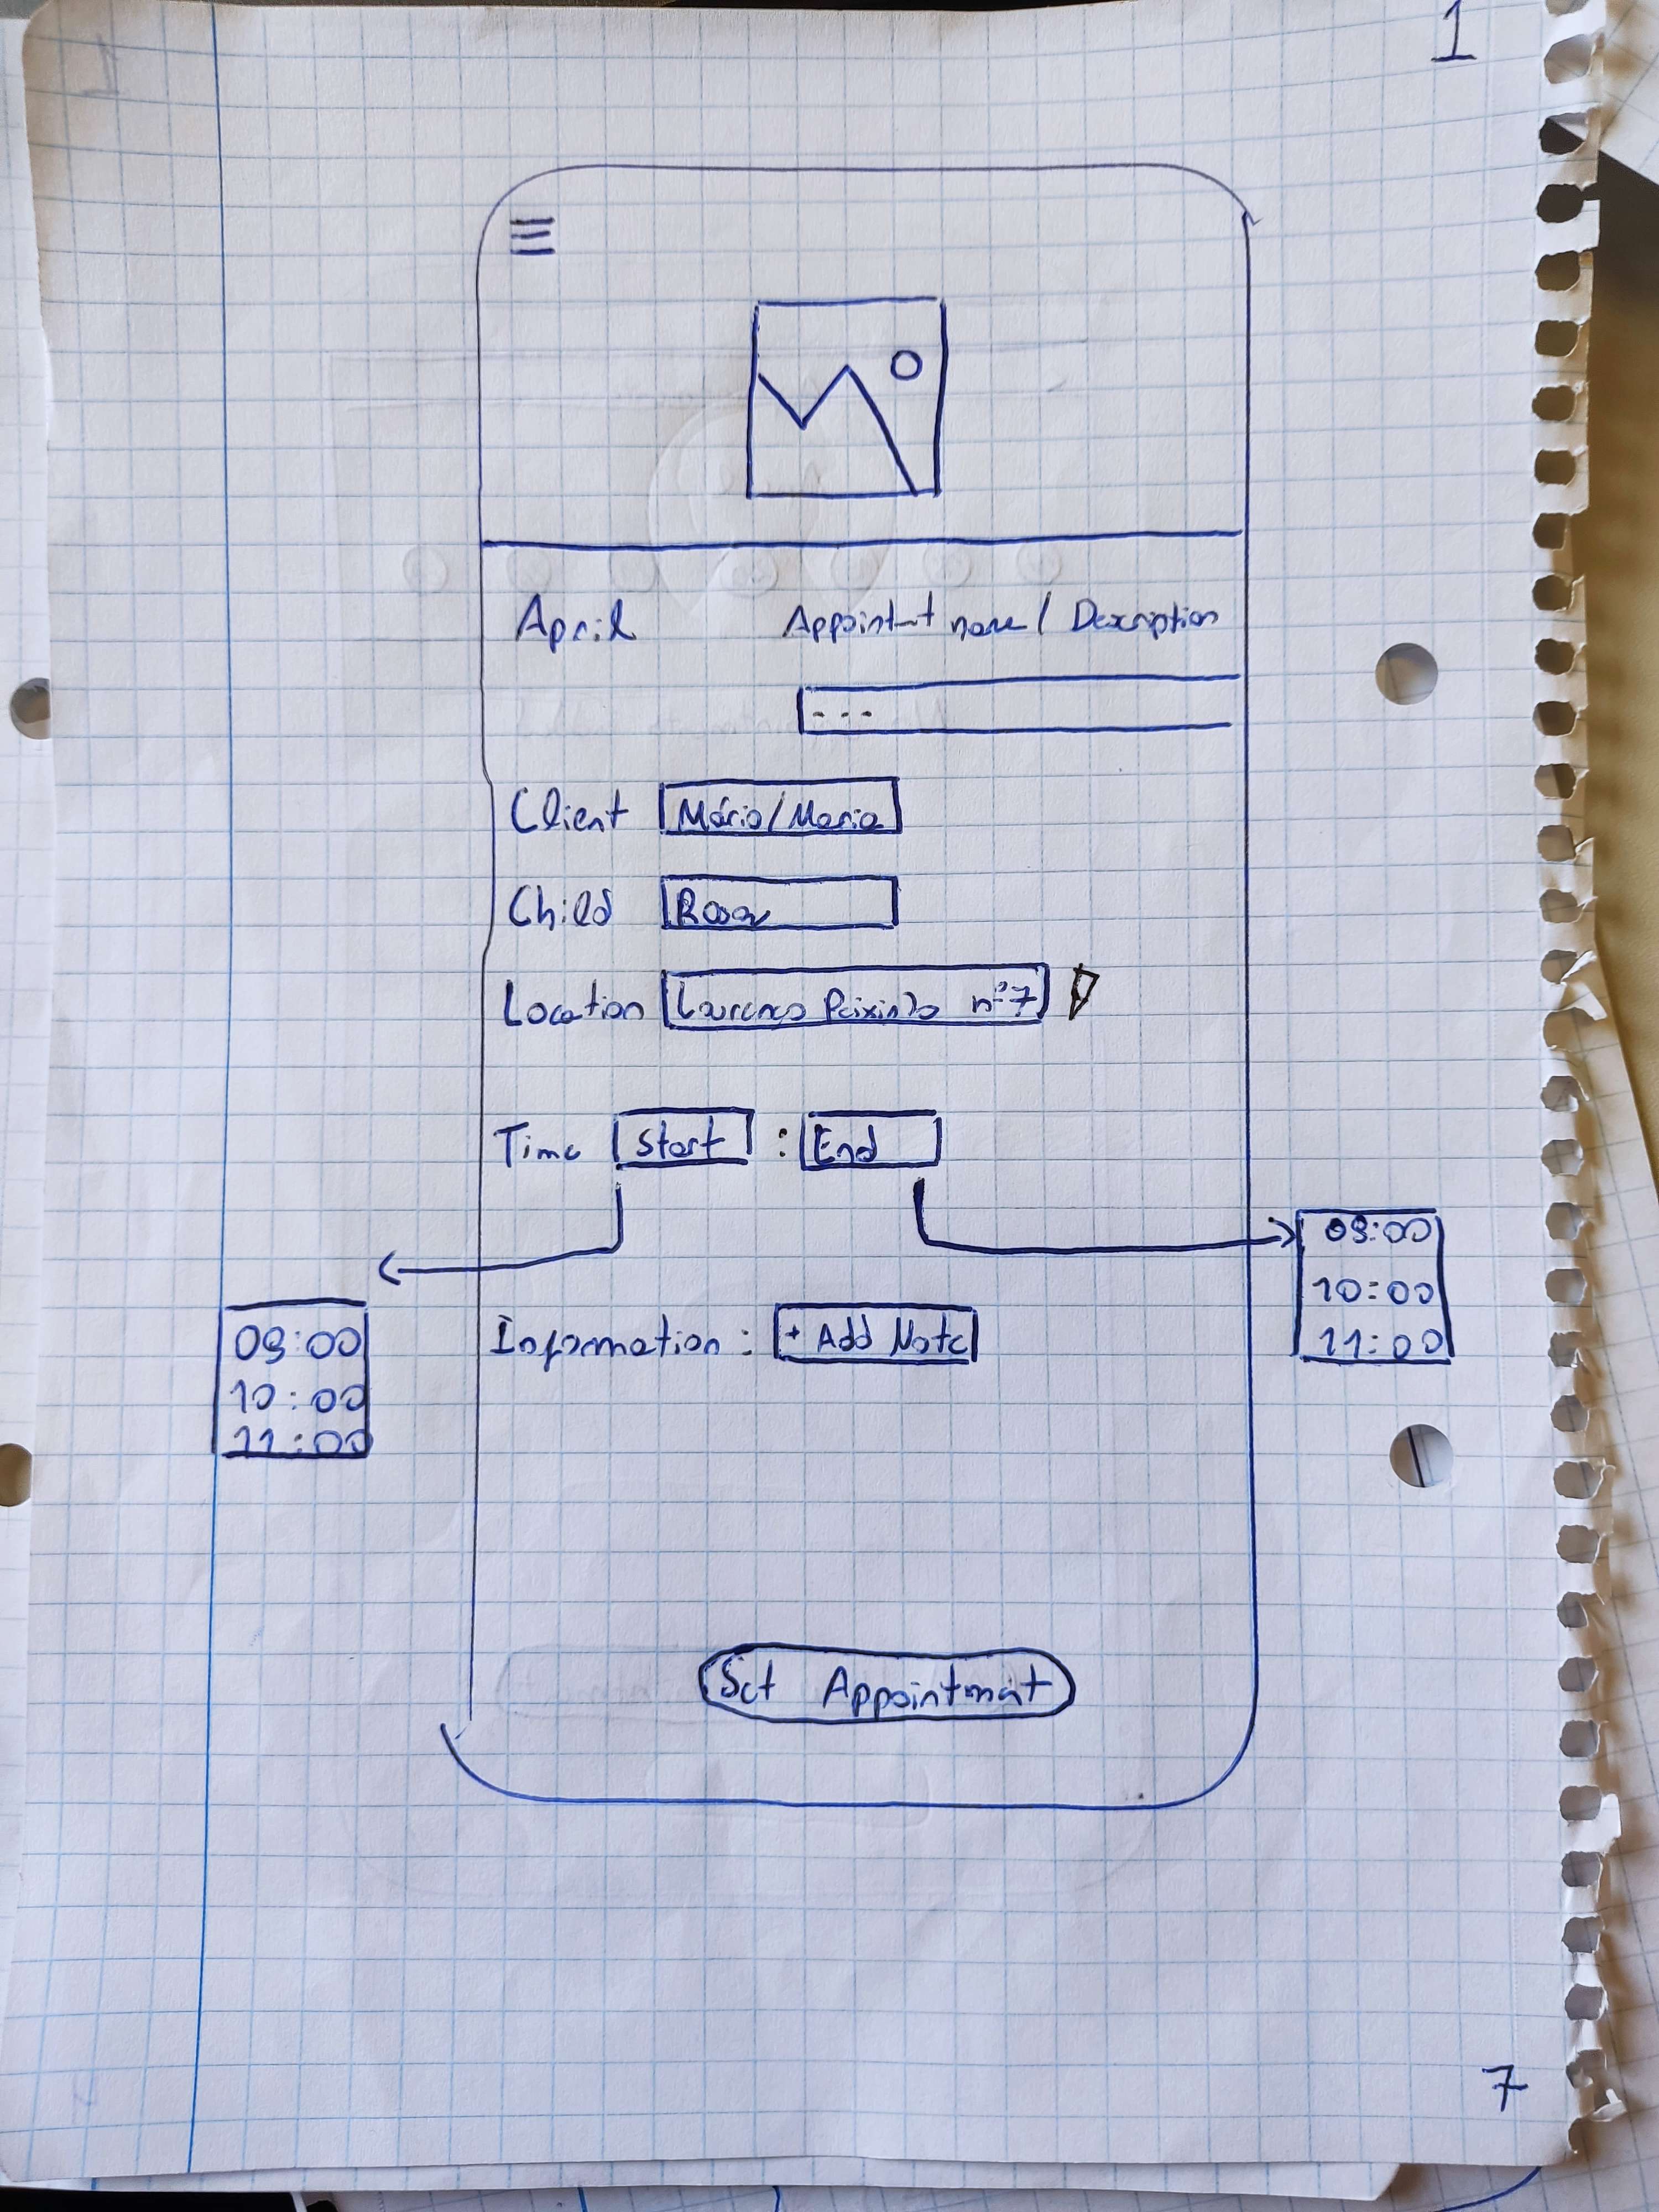 1
April Appointment name / Description
---
Client Mário/Maria
Child Rosa
Location Lourenço Peixinho nº7
Time Start : End
09:00
10:00
11:00
09:00
10:00
11:00
Information : + Add Note
Set Appointment
7